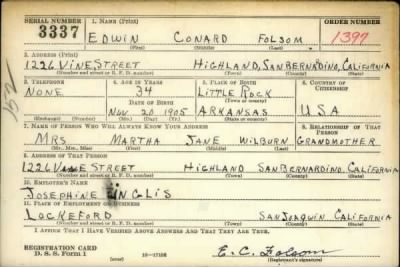 SERIAL NUMBER 1. NAME (Print) ORDER NUMBER
3337 EDWIN CONARD FOLSOM 1397
(First) (Middle) (Last)
2. ADDRESS (Print)
1226 VINE STREET HIGHLAND, SAN BERNARDINO, CALIFORNIA
(Number and street or R. F. D. number) (Town) (County) (State)
3. TELEPHONE 4. AGE IN YEARS 5. PLACE OF BIRTH 6. COUNTRY OF CITIZENSHIP
NONE 34 LITTLE ROCK
DATE OF BIRTH (Town or county)
NOV 20 1905 ARKANSAS USA
(Mo.) (Day) (Yr.) (State or country)
7. NAME OF PERSON WHO WILL ALWAYS KNOW YOUR ADDRESS 8. RELATIONSHIP OF THAT PERSON
MRS MARTHA JANE WILBURN GRANDMOTHER
(Mr., Mrs., Miss) (First) (Middle) (Last)
9. ADDRESS OF THAT PERSON
1226 VINE STREET HIGHLAND SAN BERNARDINO, CALIFORNIA
(Number and street or R. F. D. number) (Town) (County) (State)
10. EMPLOYER'S NAME
JOSEPHINE INGLIS
11. PLACE OF EMPLOYMENT OR BUSINESS
LOCKEFORD SAN JOAQUIN CALIFORNIA
(Number and street or R. F. D. number) (Town) (County) (State)
I AFFIRM THAT I HAVE VERIFIED ABOVE ANSWERS AND THAT THEY ARE TRUE.
REGISTRATION CARD
D. S. S. Form 1 16—17105 E. C. Folsom
(Registrant's signature)